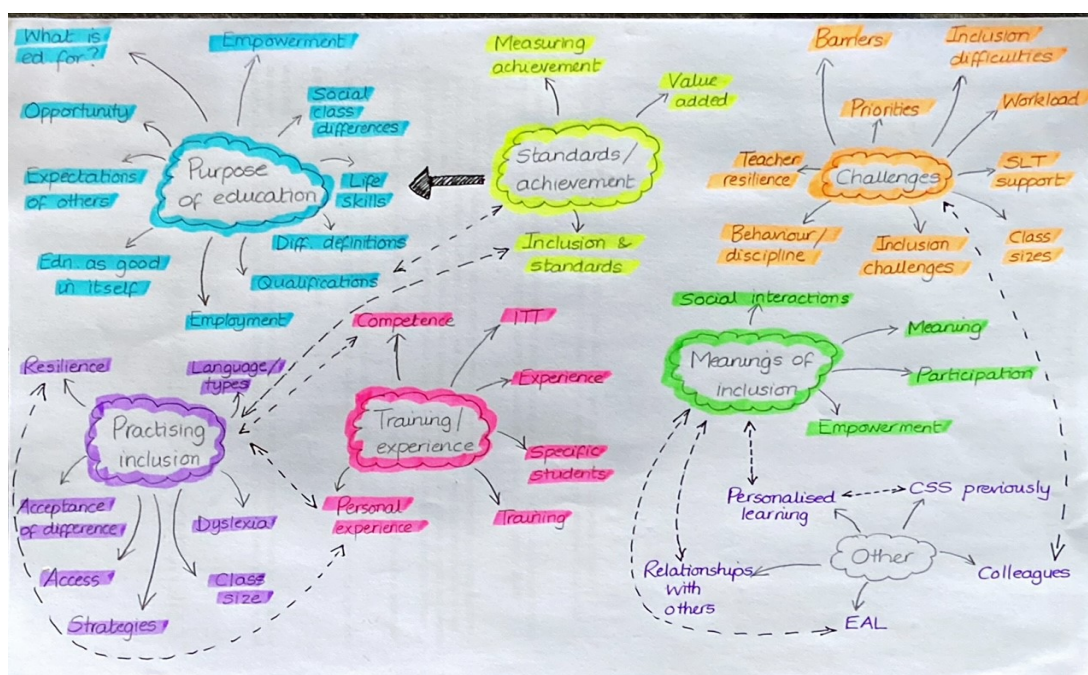 What is
ed. for?
Empowerment
Opportunity
Social
class
differences
Purpose
of education
Expectations
of others
Life
skills
Diff. definitions
Edn. as good
in itself
Qualifications
Employment
Measuring
achievement
Value
added
Standards/
achievement
Inclusion &
standards
Barriers
Inclusion
difficulties
Priorities
Workload
Teacher
resilience
Challenges
SLT
support
Behaviour/
discipline
Inclusion
challenges
Class
sizes
Resilience
Language/
types
Practising
inclusion
Acceptance
of difference
Dyslexia
Access
Class
size
Strategies
Competence
ITT
Training/
experience
Experience
Specific
students
Personal
experience
Training
Social interactions
Meanings of
inclusion
Meaning
Participation
Empowerment
Personalised
learning
CSS previously
Other
Relationships
with
others
Colleagues
EAL